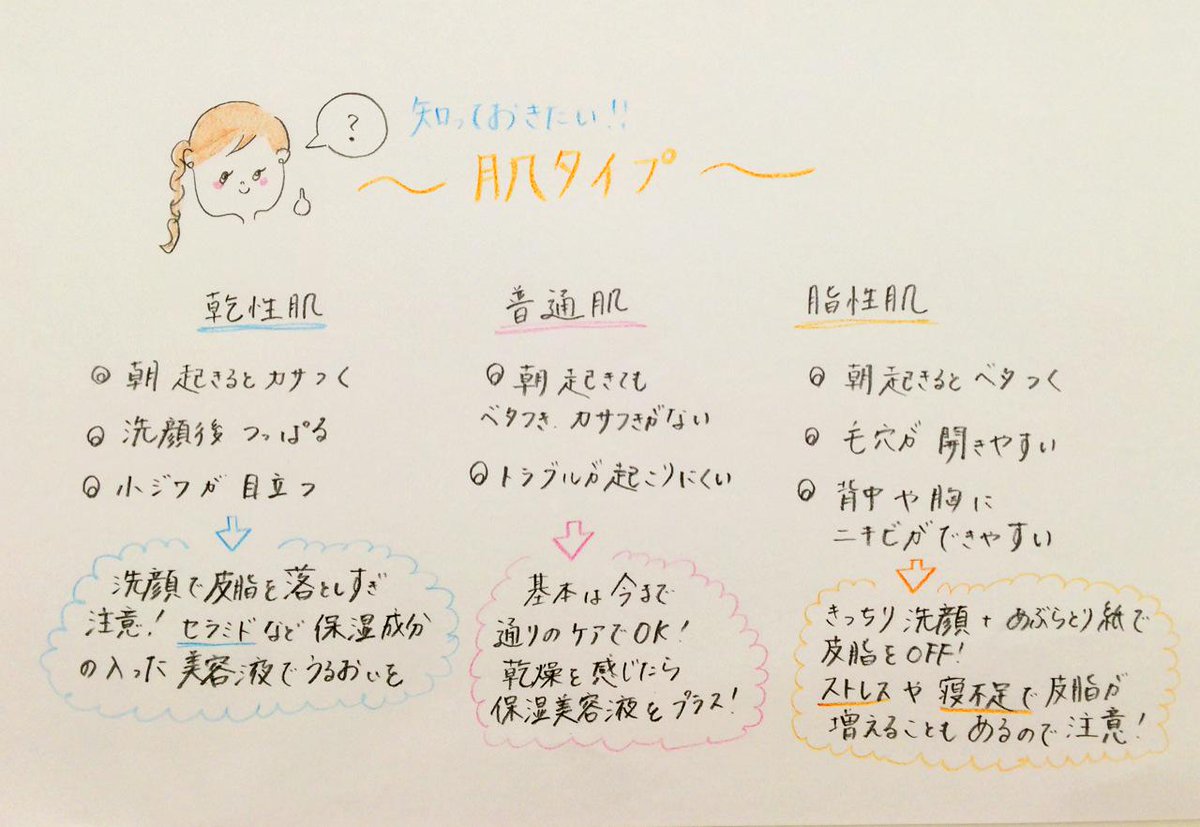 ?
知っておきたい!!
〜 肌タイプ 〜
乾性肌
◎ 朝起きるとカサつく
◎ 洗顔後つっぱる
◎ 小ジワが目立つ
洗顔で皮脂を落としすぎ
注意! セラミドなど保湿成分
の入った美容液でうるおいを
普通肌
◎ 朝起きても
ベタつき、カサつきがない
◎ トラブルが起こりにくい
基本は今まで
通りのケアでOK!
乾燥を感じたら
保湿美容液をプラス!
脂性肌
◎ 朝起きるとベタつく
◎ 毛穴が開きやすい
◎ 背中や胸に
ニキビができやすい
きっちり洗顔+あぶらとり紙で
皮脂をOFF!
ストレスや寝不足で皮脂が
増えることもあるので注意!